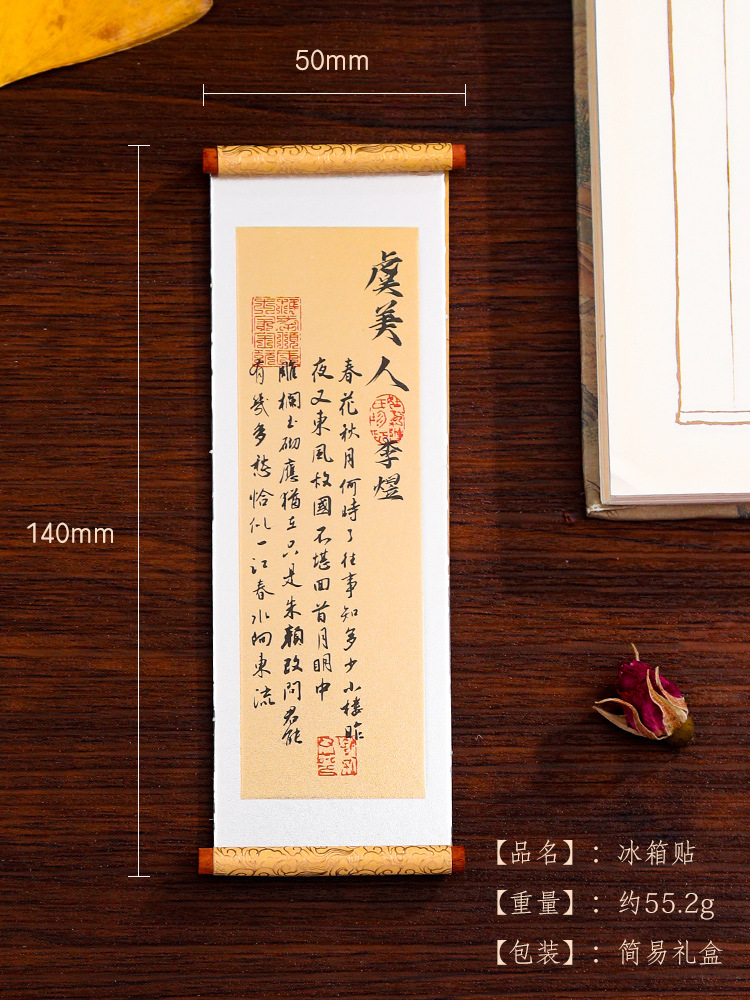 50mm
140mm
虞美人
李煜
春花秋月何時了往事知多少小樓昨
夜又東風故國不堪回首月明中
雕欄玉砌應猶在只是朱顏改問君能
有幾多愁恰似一江春水向東流
【品名】：冰箱贴
【重量】：约55.2g
【包装】：简易礼盒